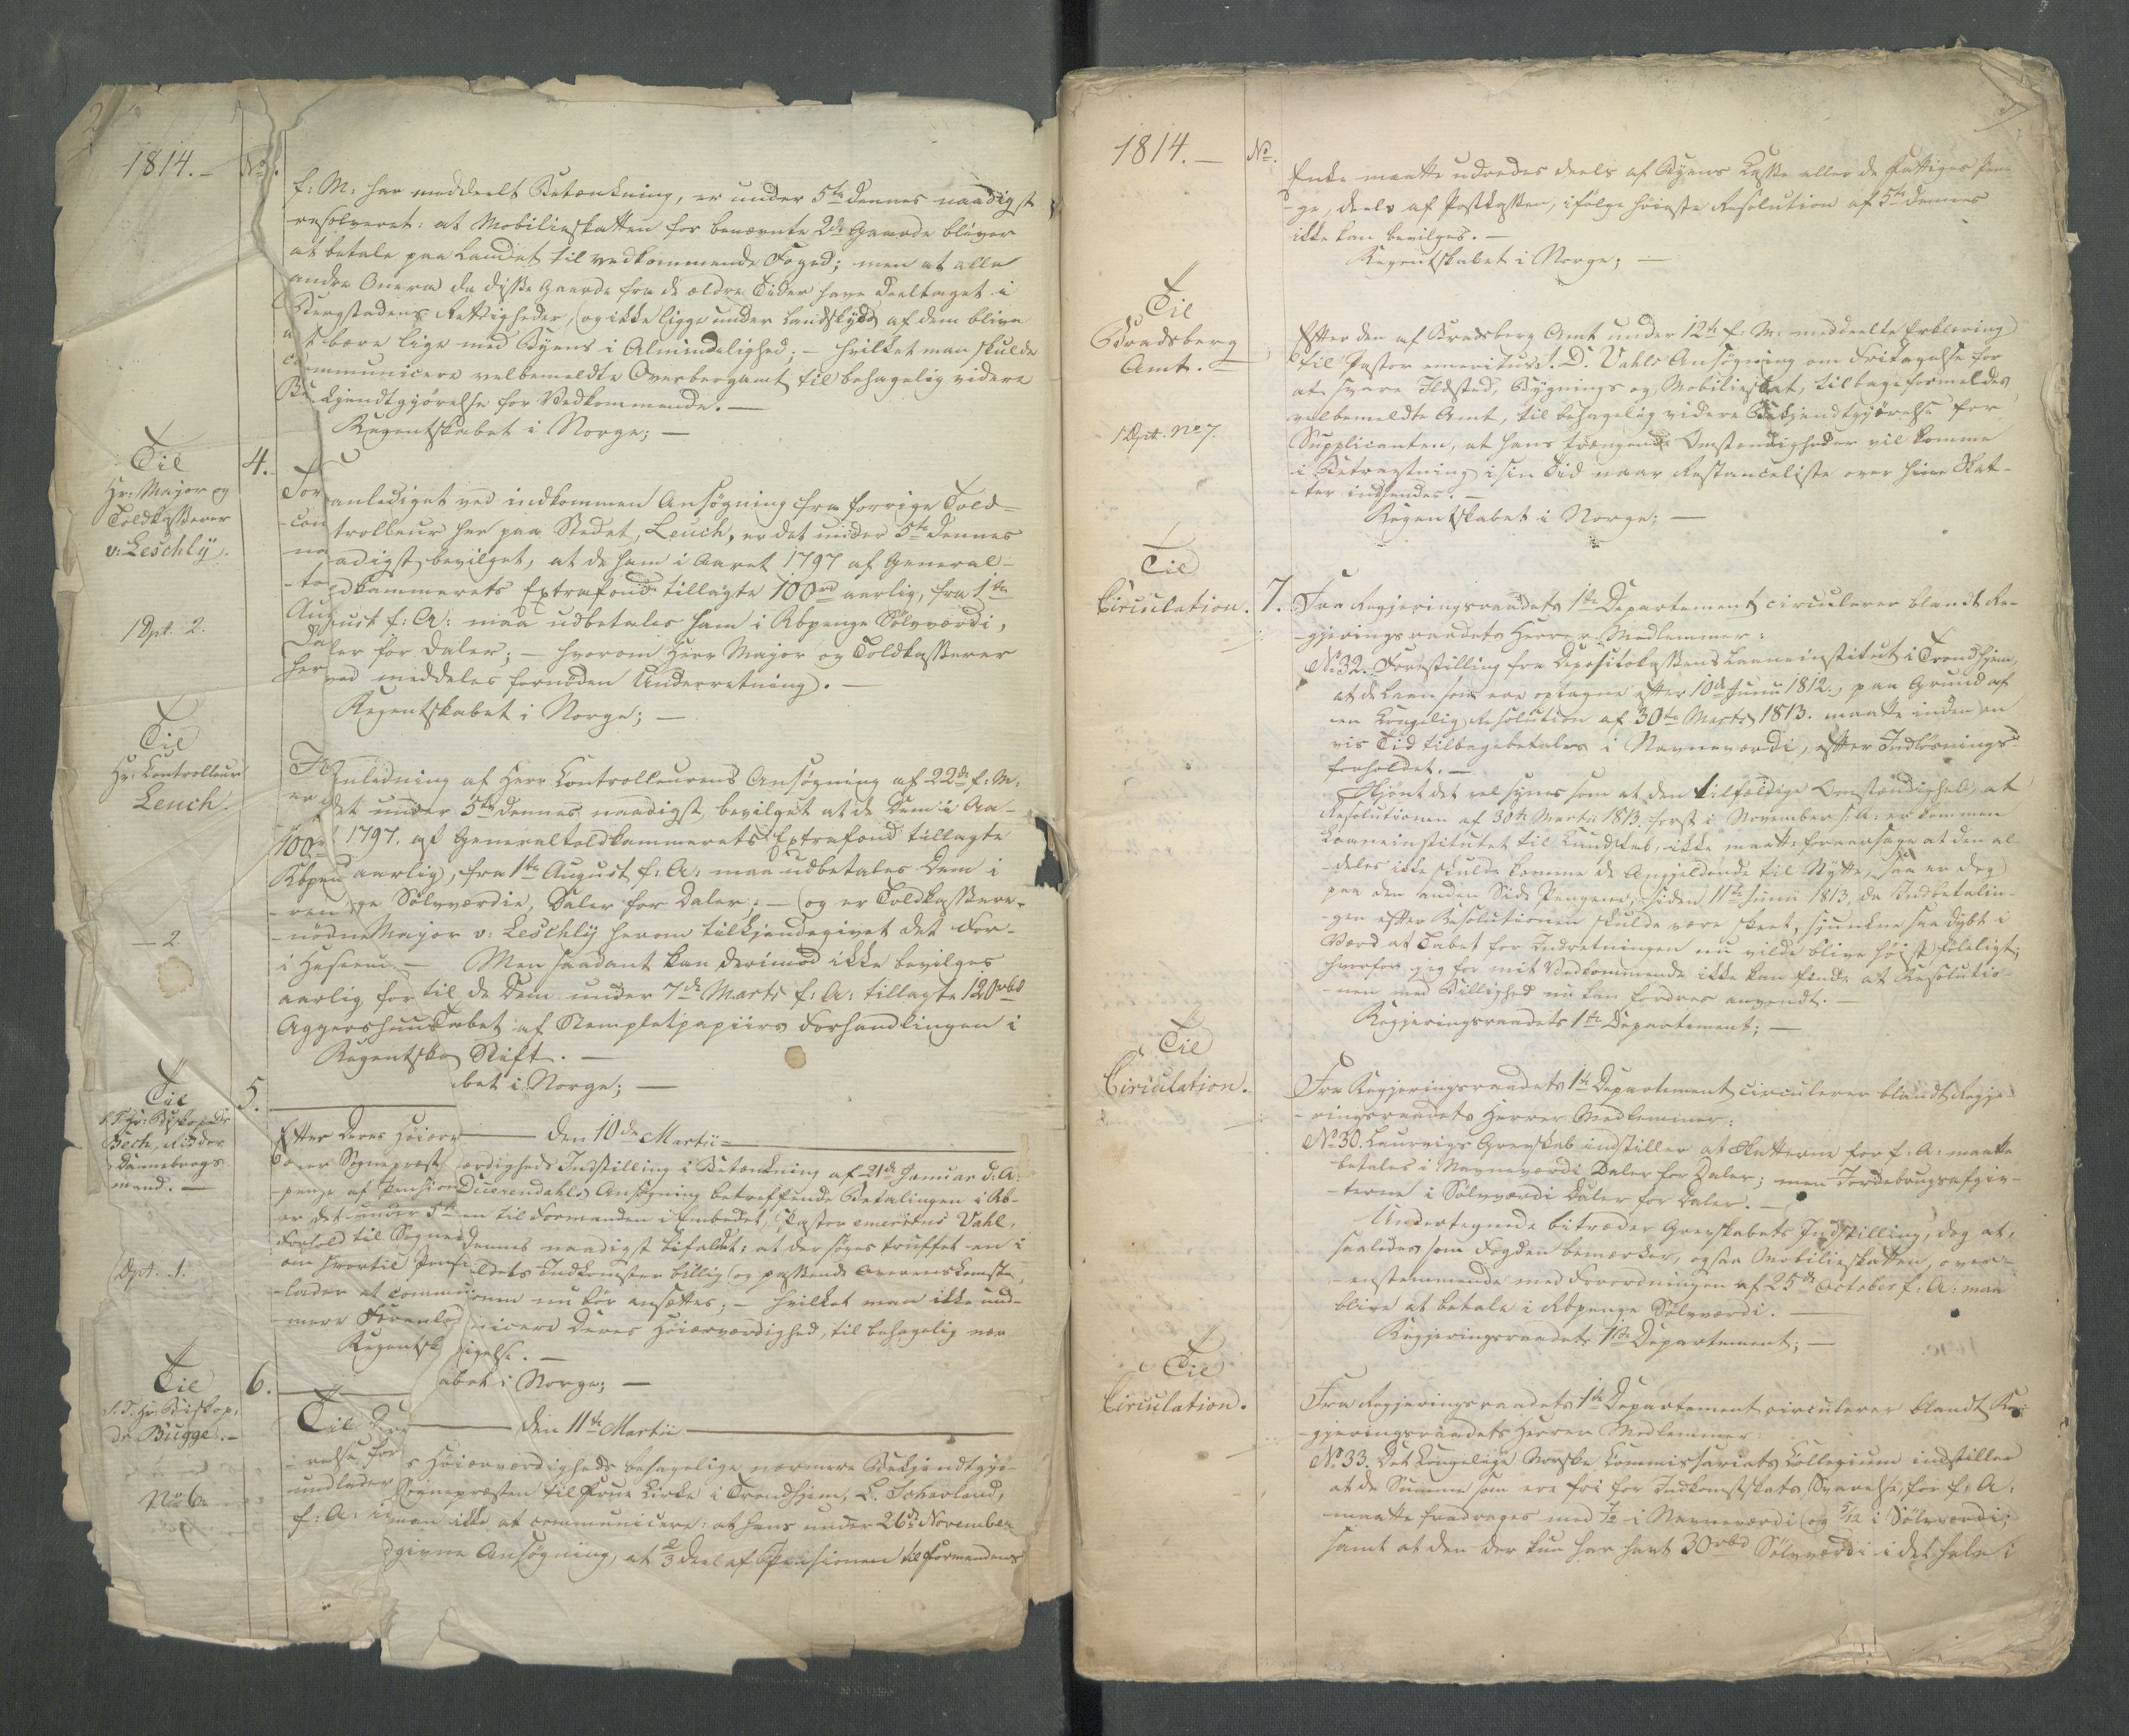 2
1814.-
No.
f: M: har meddeelt Betænkning, er under 5te dennes naadigst
resolveret: at Mobilieskatten for benævnte 2de Gaarde bliver
at betale paa Landet til vedkommende Foged; men at alle
andre Onera da disse Gaarde fra de ældre Tider have deeltaget i
Bergstadens Rettigheder, (og ikke ligge under Landskyld) af dem blive
at bære lige med Byens i Almindelighed; - hvilket man skulde
communicere velbemeldte Overbergamt til behagelig videre
Bekjendtgjørelse for Vedkommende. -
Regentskabet i Norge; -
Til
Hr: Major og
Toldkasserer
v: Leschly.
1 Dpt. 2.
4.
Foranlediget ved indkommen Ansøgning fra forrige Told-
-controlleur her paa Stedet, Leuch, er det under 5te dennes
naadigst bevilget, at de ham i Aaret 1797 af General-
-toldkammerets Extrafond tillagte 100rd aarlig, fra 1te
August f: A: maa udbetales ham i Rbpenge Sølvværdi,
Daler for Daler; - hvorom Herr Major og Toldkasserer
herved meddeles fornøden Underretning. -
Regentskabet i Norge; -
Til
Hr: Controlleur
Leuch.
- 2.
I Anledning af Herr Controlleurens Ansøgning af 22de f: M:
er det under 5te dennes naadigst bevilget at de Dem i Aa-
1797. af Generaltoldkammerets Extrafond tillagte
100rd aarlig, fra 1te August f: A: maa udbetales Dem i
Rbpenge Sølvværdie, Daler for Daler; - og er Toldkasserer-
-ren Major v: Leschly herom tilkjendegivet det For-
-nødne - Men saadant kan derimod ikke bevilges
i Henseende til de Dem under 7de Marts f: A: tillagte 120rbd
aarlig for Tabet af Stempletpapiirs Forhandlingen i
Aggershuus Stift. -
Regentskabet i Norge; -
Den 10de Martii
Til
S. T. Hr: Biskop Dr
Bech, Ridder
Dannebrogs
mand. -
Dpt. 1.
5.
Efter Deres Høiærværdigheds Indstilling i Betænkning af 21de Januar d: A:
over Sognepræst Duerendahls Ansøgning betreffende Betalingen i Rb-
-penge af Pensionen til Formanden i Embedet, Pastor emeritus Vahl,
er det under 5te dennes naadigst bifaldet: at der søges truffet en i
Forhold til Sognekaldets Indkomster billig og passende Overenskomst,
om hvortil Pensionen nu bør ansættes; - hvilket man ikke und-
-lader at communicere Deres Høiærværdighed, til behagelig nær
-mere Foranledigelse. -
Regentskabet i Norge; -
Den 11te Martii
Til
S. T. Hr: Biskop,
Dr Bugge. -
No 6.
6.
Til Deres Høiærværdigheds behagelige nærmere Bekjendtgjø-
-relse for Sognepræsten til Frue Kirke i Trondhjem, L. Schierland,
undlader man ikke at communicere: at hans under 26de November
f: A: indgivne Ansøgning, at 2/3 deel af Pensionen til Formandens
1814. -
No.
Enke maatte udredes deels af Byens Casse eller de Fattiges Pen-
-ge, deels af Postkassen, ifølge høieste Resolution af 5te dennes
ikke kan bevilges. -
Regentskabet i Norge; -
Til
Bradsberg
Amt. -
1 Dpt. No 7.
Efter den af Bradsberg Amt under 12te f: M: meddeelte Erklæring
til Pastor emeritus J. D. Vahls Ansøgning om Fritagelse for
at svare Ildsted, Bygnings og Mobilieskat, tilbagemeldes
velbemeldte Amt, til behagelig videre Bekjendtgjørelse for
Supplicanten, at hans trængende Omstændigheder vil komme
i Betragtning i sin Tid naar Restanceliste over hine Skat-
-ter indsendes. -
Regentskabet i Norge; -
Til
Circulation.
7.
Fra Regjeringsraadets 1te Departement circulerer blandt Re-
-gjeringsraadets Herrer Medlemmer:
No 32. Forestilling fra Depositokassens Laaneinstitut i Trondhjem,
at de Laan som ere optagne efter 10de Junii 1812., paa Grund af
en Kongelig Resolution af 30te Marts 1813. maatte inden en
vis Tid tilbagebetales i Navneværdi, efter Indløsnings-
forholdet. -
Skjønt det vel synes som at den tilfældige Omstændighed, at
Resolutionen af 30te Martii 1813. først i November s: A: er kommen
Laaneinstitutet til Kundskab, ikke maatte foraarsage at den al-
-deles ikke skulde komme de Angjeldende til Nytte, saa er dog
paa den anden Side Pengene, siden 11te Junii 1813, da Indbetalin-
-gen efter Resolutionen skulde være skeet, sjunkne saa dybt i
Værd at Tabet for Indretningen nu vilde blive høist føleligt;
hvorfor jeg for mit Vedkommende ikke kan finde at Resolutio-
-nen med Billighed nu kan fordres anvendt. -
Regjeringsraadets 1te Departement; -
Til
Circulation.
Fra Regjeringsraadets 1te Departement circulerer blandt Regje-
-ringsraadets Herrer Medlemmer:
No 30. Laurvigs Grevskab indstiller at Skatterne for f: A: maatte
betales i Navneværdi Daler for Daler; men Jordebrugsafgiv-
-terne i Sølvværdi Daler for Daler. -
Undertegnede bitræder Grevskabets Indstilling, dog at,
saaledes som Fogden bemærker, ogsaa Mobilieskatten, over-
-enstemmende med Forordningen af 25de October f: A: maa
blive at betale i Rbpenge Sølvværdi. -
Regjeringsraadets 1te Departement; -
Til
Circulation.
Fra Regjeringsraadets 1te Departement circulerer blandt Re-
-gjeringsraadets Herrer Medlemmer:
No 33. Det Kongelige Norske Commissariats Collegium indstiller
at de Summer som ere fri for Indkomstskats Svarelse, for f: A:
maatte fradrages med i Navneværdi og 5/12 i Sølvværdi;
samt at den der kun har havt 30rbd Sølvværdi i det hele i